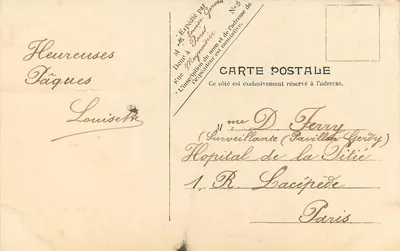 Heureuses
Pâques
Louisette
Expédié par
M
Demt à Paris
Rue
No 5
« L'inscription du nom et de l'adresse de
l'expéditeur est facultative. »
CARTE POSTALE
Ce côté est exclusivement réservé à l'adresse.
Mme D. Ferry
(Surveillante (Pavillon Gerdy)
Hopital de la Pitié
1, R. Lacépède
Paris